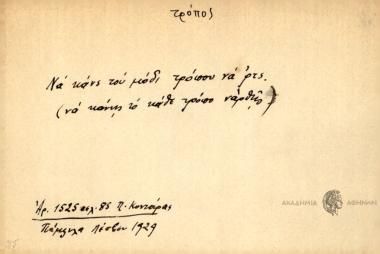 τρόπος
Νά κάνς τού μόδι τρόπου νά ρτς.
(νά κάνης τό κάθε τρόπο νἄρθῃς)
Ἀρ. 1525 σελ. 85 Π. Κοντάρας
Πάμφιλα Λέσβου 1929
ΑΚΑΔΗΜΙΑ ΑΘΗΝΩΝ